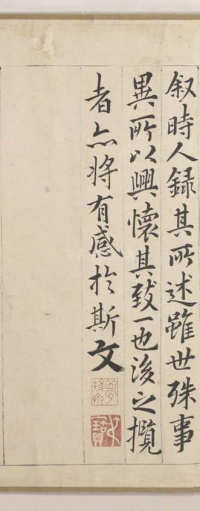 叙時人録其所述雖世殊事
異所以興懷其致一也後之攬
者亦將有感於斯文